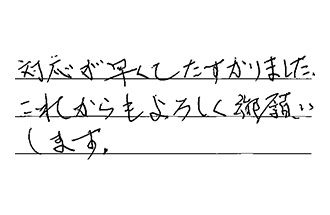 対応が早くてたすかりました.
これからもよろしく御願い
します.